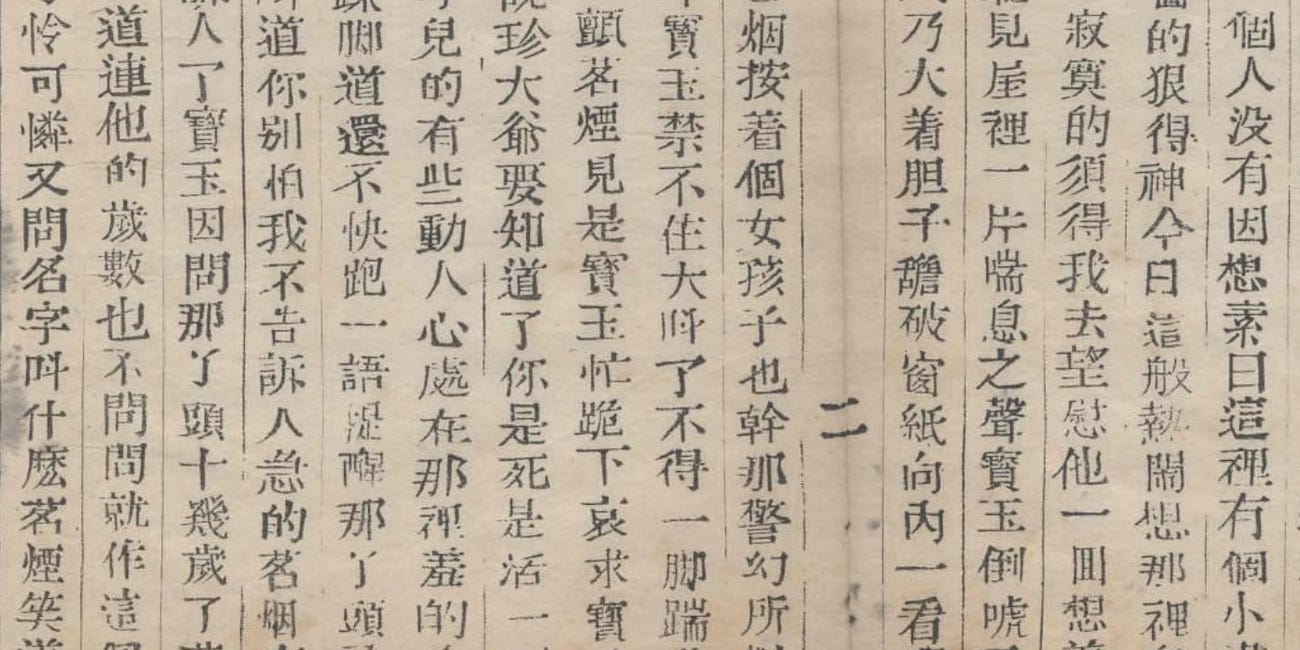 個人没有因想素日這裡有個小
的狠得神今日這般熱鬧想那裡
寂寞的須得我去望慰他一囬想
見屋裡一片喘息之聲寳玉倒唬
乃大着胆子䑛破窗紙向内一看
二
烟按着個女孩子也幹那警幻所
寳玉禁不住大呌了不得一脚踹
顫茗煙見是寳玉忙跪下哀求寳
珍大爺要知道了你是死是活一
兒的有些動人心處在那裡羞的
脚道還不快跑一語提醒那丫頭
道你别怕我不告訴人急的茗烟
人了寳玉因問那丫頭十幾歲了
道連他的歲數也不問問就作這
怜可憐又問名字呌什麽茗煙笑